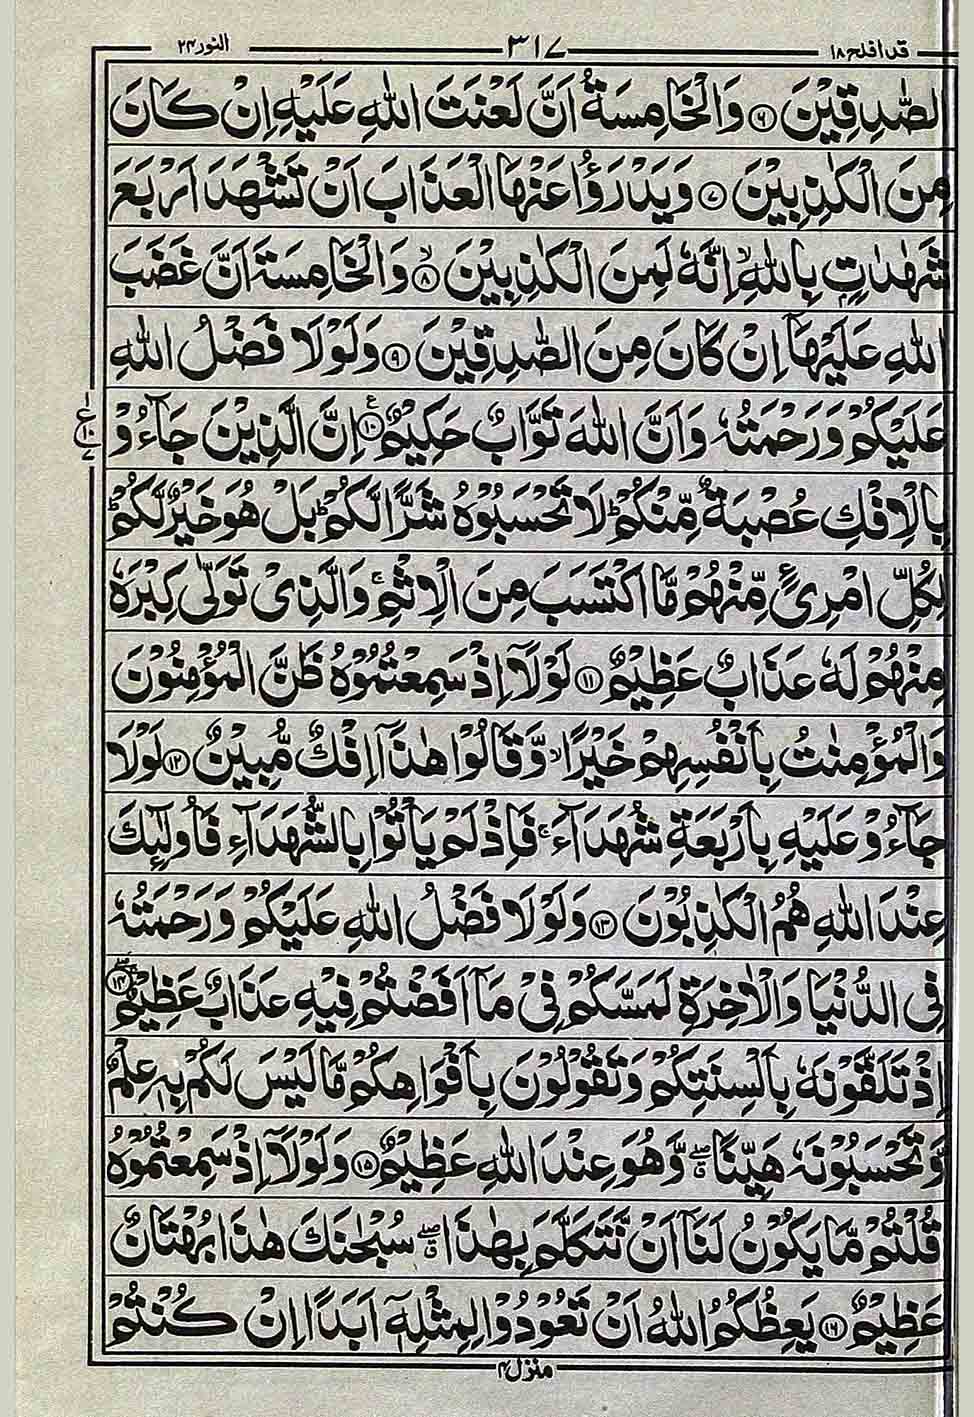 قد افلح ١٨ ٣١٧ النور ٢٤
الصّٰدِقِیْنَ ﴿۶﴾ وَالْخَامِسَةُ اَنَّ لَعْنَتَ اللّٰهِ عَلَیْهِ اِنْ كَانَ
مِنَ الْكٰذِبِیْنَ ﴿۷﴾ وَیَدْرَؤُا عَنْهَا الْعَذَابَ اَنْ تَشْهَدَ اَرْبَعَ
شَهٰدٰتٍۭ بِاللّٰهِ ۙ اِنَّهٗ لَمِنَ الْكٰذِبِیْنَ ﴿ۙ۸﴾ وَالْخَامِسَةَ اَنَّ غَضَبَ
اللّٰهِ عَلَیْهَاۤ اِنْ كَانَ مِنَ الصّٰدِقِیْنَ ﴿۹﴾ وَلَوْلَا فَضْلُ اللّٰهِ
عَلَیْكُمْ وَرَحْمَتُهٗ وَاَنَّ اللّٰهَ تَوَّابٌ حَكِیْمٌ ﴿۱۰﴾ اِنَّ الَّذِیْنَ جَآءُوْ
بِالْاِفْكِ عُصْبَةٌ مِّنْكُمْ ؕ لَا تَحْسَبُوْهُ شَرًّا لَّكُمْ ؕ بَلْ هُوَ خَیْرٌ لَّكُمْ ؕ
لِكُلِّ امْرِئٍ مِّنْهُمْ مَّا اكْتَسَبَ مِنَ الْاِثْمِ ۚ وَالَّذِیْ تَوَلّٰی كِبْرَهٗ
مِنْهُمْ لَهٗ عَذَابٌ عَظِیْمٌ ﴿۱۱﴾ لَوْلَاۤ اِذْ سَمِعْتُمُوْهُ ظَنَّ الْمُؤْمِنُوْنَ
وَالْمُؤْمِنٰتُ بِاَنْفُسِهِمْ خَیْرًا ۙ وَّقَالُوْا هٰذَاۤ اِفْكٌ مُّبِیْنٌ ﴿۱۲﴾ لَوْلَا
جَآءُوْ عَلَیْهِ بِاَرْبَعَةِ شُهَدَآءَ ۚ فَاِذْ لَمْ یَاْتُوْا بِالشُّهَدَآءِ فَاُولٰٓئِكَ
عِنْدَ اللّٰهِ هُمُ الْكٰذِبُوْنَ ﴿۱۳﴾ وَلَوْلَا فَضْلُ اللّٰهِ عَلَیْكُمْ وَرَحْمَتُهٗ
فِی الدُّنْیَا وَالْاٰخِرَةِ لَمَسَّكُمْ فِیْ مَاۤ اَفَضْتُمْ فِیْهِ عَذَابٌ عَظِیْمٌ ﴿ۚۖ۱۴﴾
اِذْ تَلَقَّوْنَهٗ بِاَلْسِنَتِكُمْ وَتَقُوْلُوْنَ بِاَفْوَاهِكُمْ مَّا لَیْسَ لَكُمْ بِهٖ عِلْمٌ
وَّتَحْسَبُوْنَهٗ هَیِّنًا ۖۗ وَّهُوَ عِنْدَ اللّٰهِ عَظِیْمٌ ﴿۱۵﴾ وَلَوْلَاۤ اِذْ سَمِعْتُمُوْهُ
قُلْتُمْ مَّا یَكُوْنُ لَنَاۤ اَنْ نَّتَكَلَّمَ بِهٰذَا ۖۗ سُبْحٰنَكَ هٰذَا بُهْتَانٌ
عَظِیْمٌ ﴿۱۶﴾ یَعِظُكُمُ اللّٰهُ اَنْ تَعُوْدُوْا لِمِثْلِهٖۤ اَبَدًا اِنْ كُنْتُمْ
منزل ۴
ع ۱ ۱۰ ۷